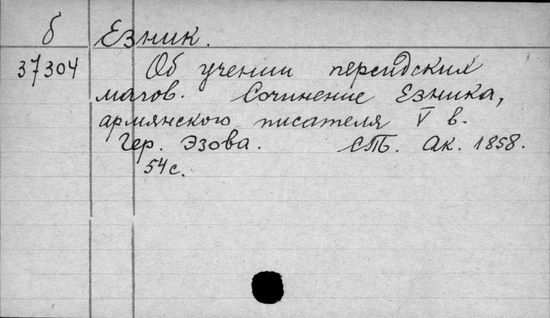 б Езник.
37304 Об учении персидских
магов. Сочинение Езника,
армянского писателя V в.
Гер. Эзова. СПб. Ак. 1858.
54 с.